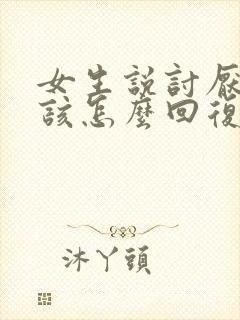 女生説討厭
該怎麼回復
沐丫頭